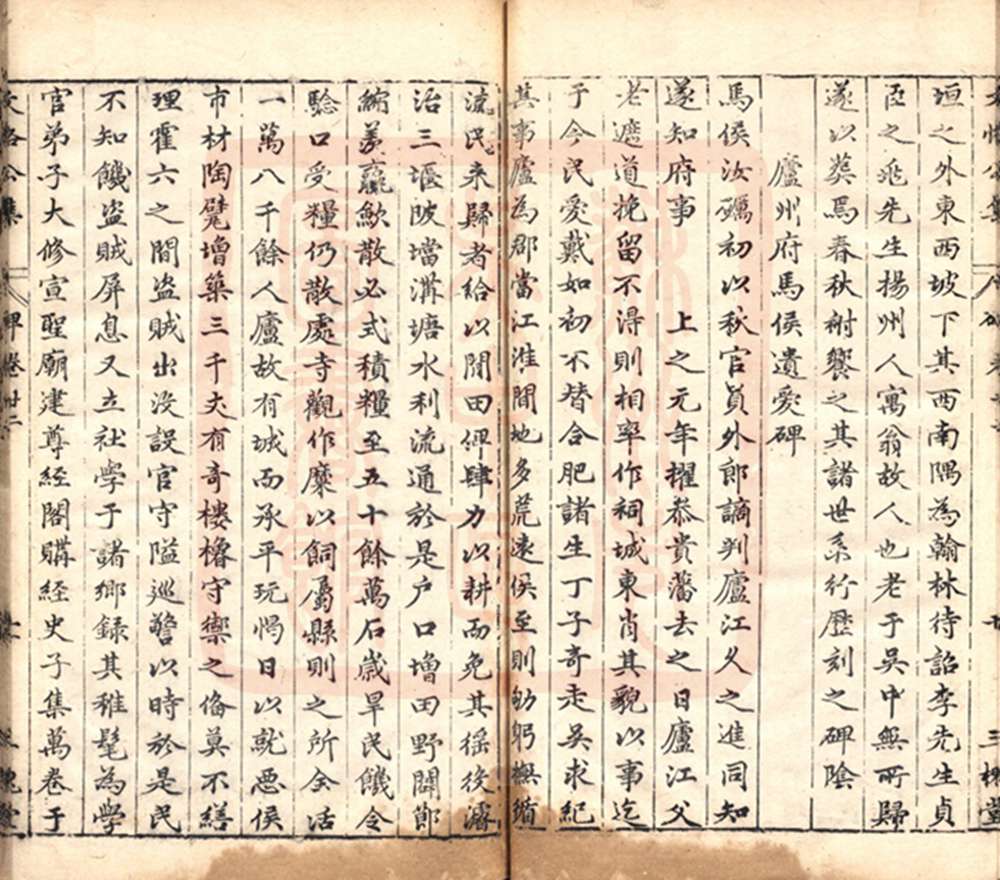 垣之外東西坡下其西南隅為翰林待詔李先生貞
臣之兆先生揚州人寓翁故人也老于吳中無所歸
遂以葬焉春秋祔饗之其諸世系行歷刻之碑陰
廬州府馬侯遺愛碑
馬侯汝礪初以秋官員外郎謫判廬江久之進同知
遂知府事 上之元年擢叅貴藩去之日廬江父
老遮道挽留不淂則相率作祠城東肖其貌以事迄
于今民愛戴如初不替合肥諸生丁子奇走吳求紀
其事廬為郡當江淮間地多荒遠侯至則劬躬撫循
流民来歸者給以閒田俾肆力以耕而免其徭後濬
治三堰陂壋溝塘水利流通於是户口增田野闢節
縮羡贏歛散必式積糧至五十餘萬石歲旱民饑令
驗口受糧仍散處寺觀作糜以飼屬縣則之所全活
一萬八千餘人廬故有城而承平玩愒日以就惡侯
市材陶甓增築三千丈有奇樓櫓守禦之俻莫不繕
理霍六之間盗賊出没設官守隘巡警以時於是民
不知饑盗賊屏息又立社學于諸鄉録其稚髦為學
官弟子大修宣聖廟建尊經閣購経史子集萬卷于